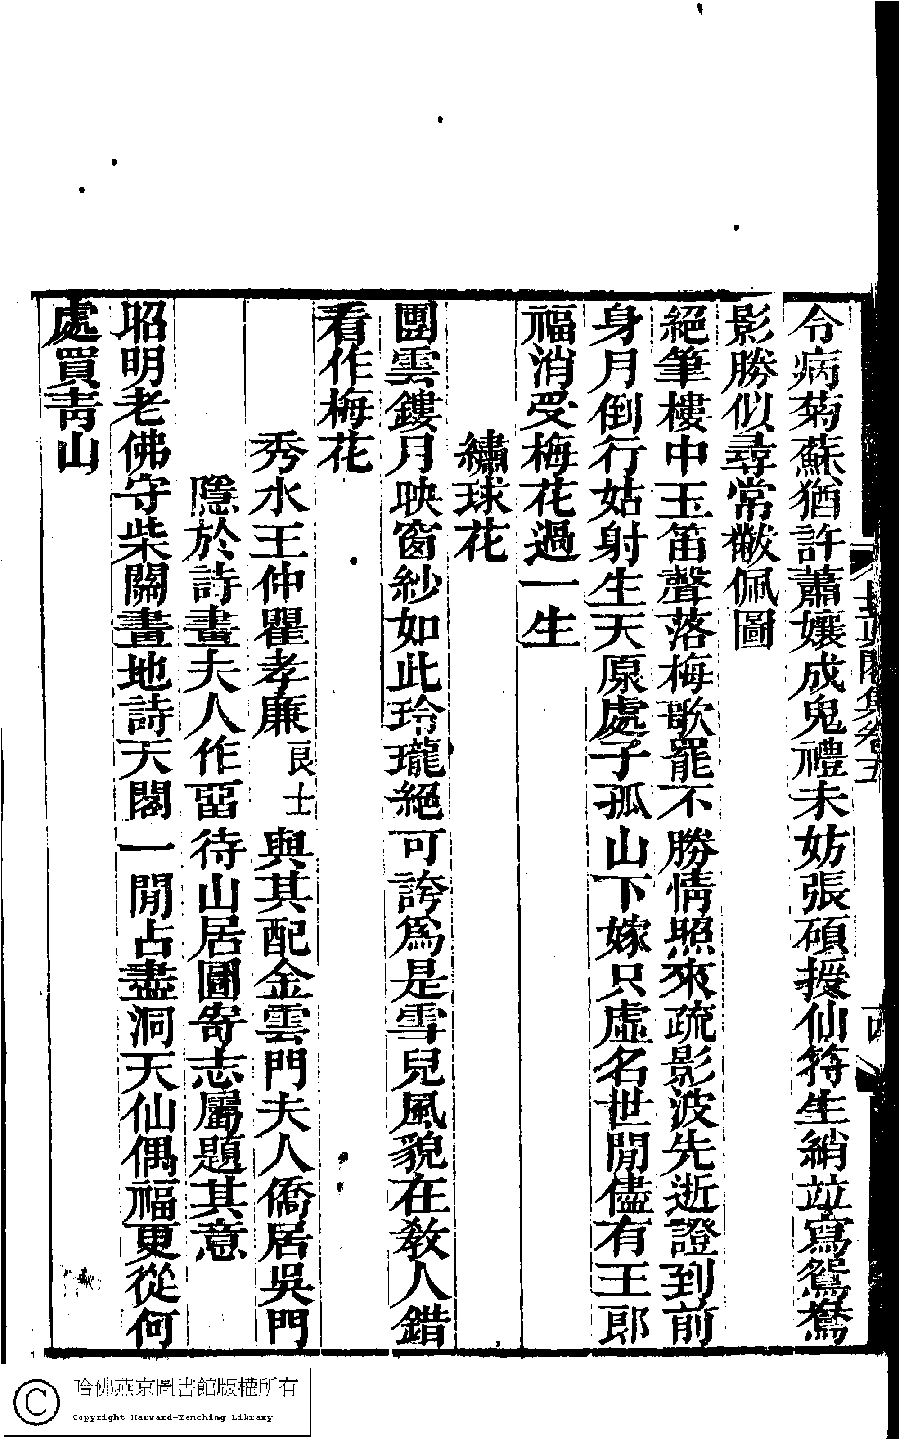 令病菊蘇猶許蕭孃成鬼禮未妨張碩授仙符生綃竝寫鴛鴦
影勝似尋常黻佩圖
絕筆樓中玉笛聲落梅歌罷不勝情照來疏影波先逝證到前
身月倒行姑射生天原處子孤山下嫁只虛名世閒儘有王郎
福消受梅花過一生
繡球花
團雲鏤月映窗紗如此玲瓏絕可誇爲是雪兒風貌在教人錯
看作梅花
秀水王仲瞿孝廉良士與其配金雲門夫人僑居吳門
隱於詩畫夫人作畱待山居圖寄志屬題其意
昭明老佛守柴關畫地詩天閣一閒占盡洞天仙偶福更從何
處買靑山
哈佛燕京圖書館版權所有
Copyright Harvard-Yenching Library